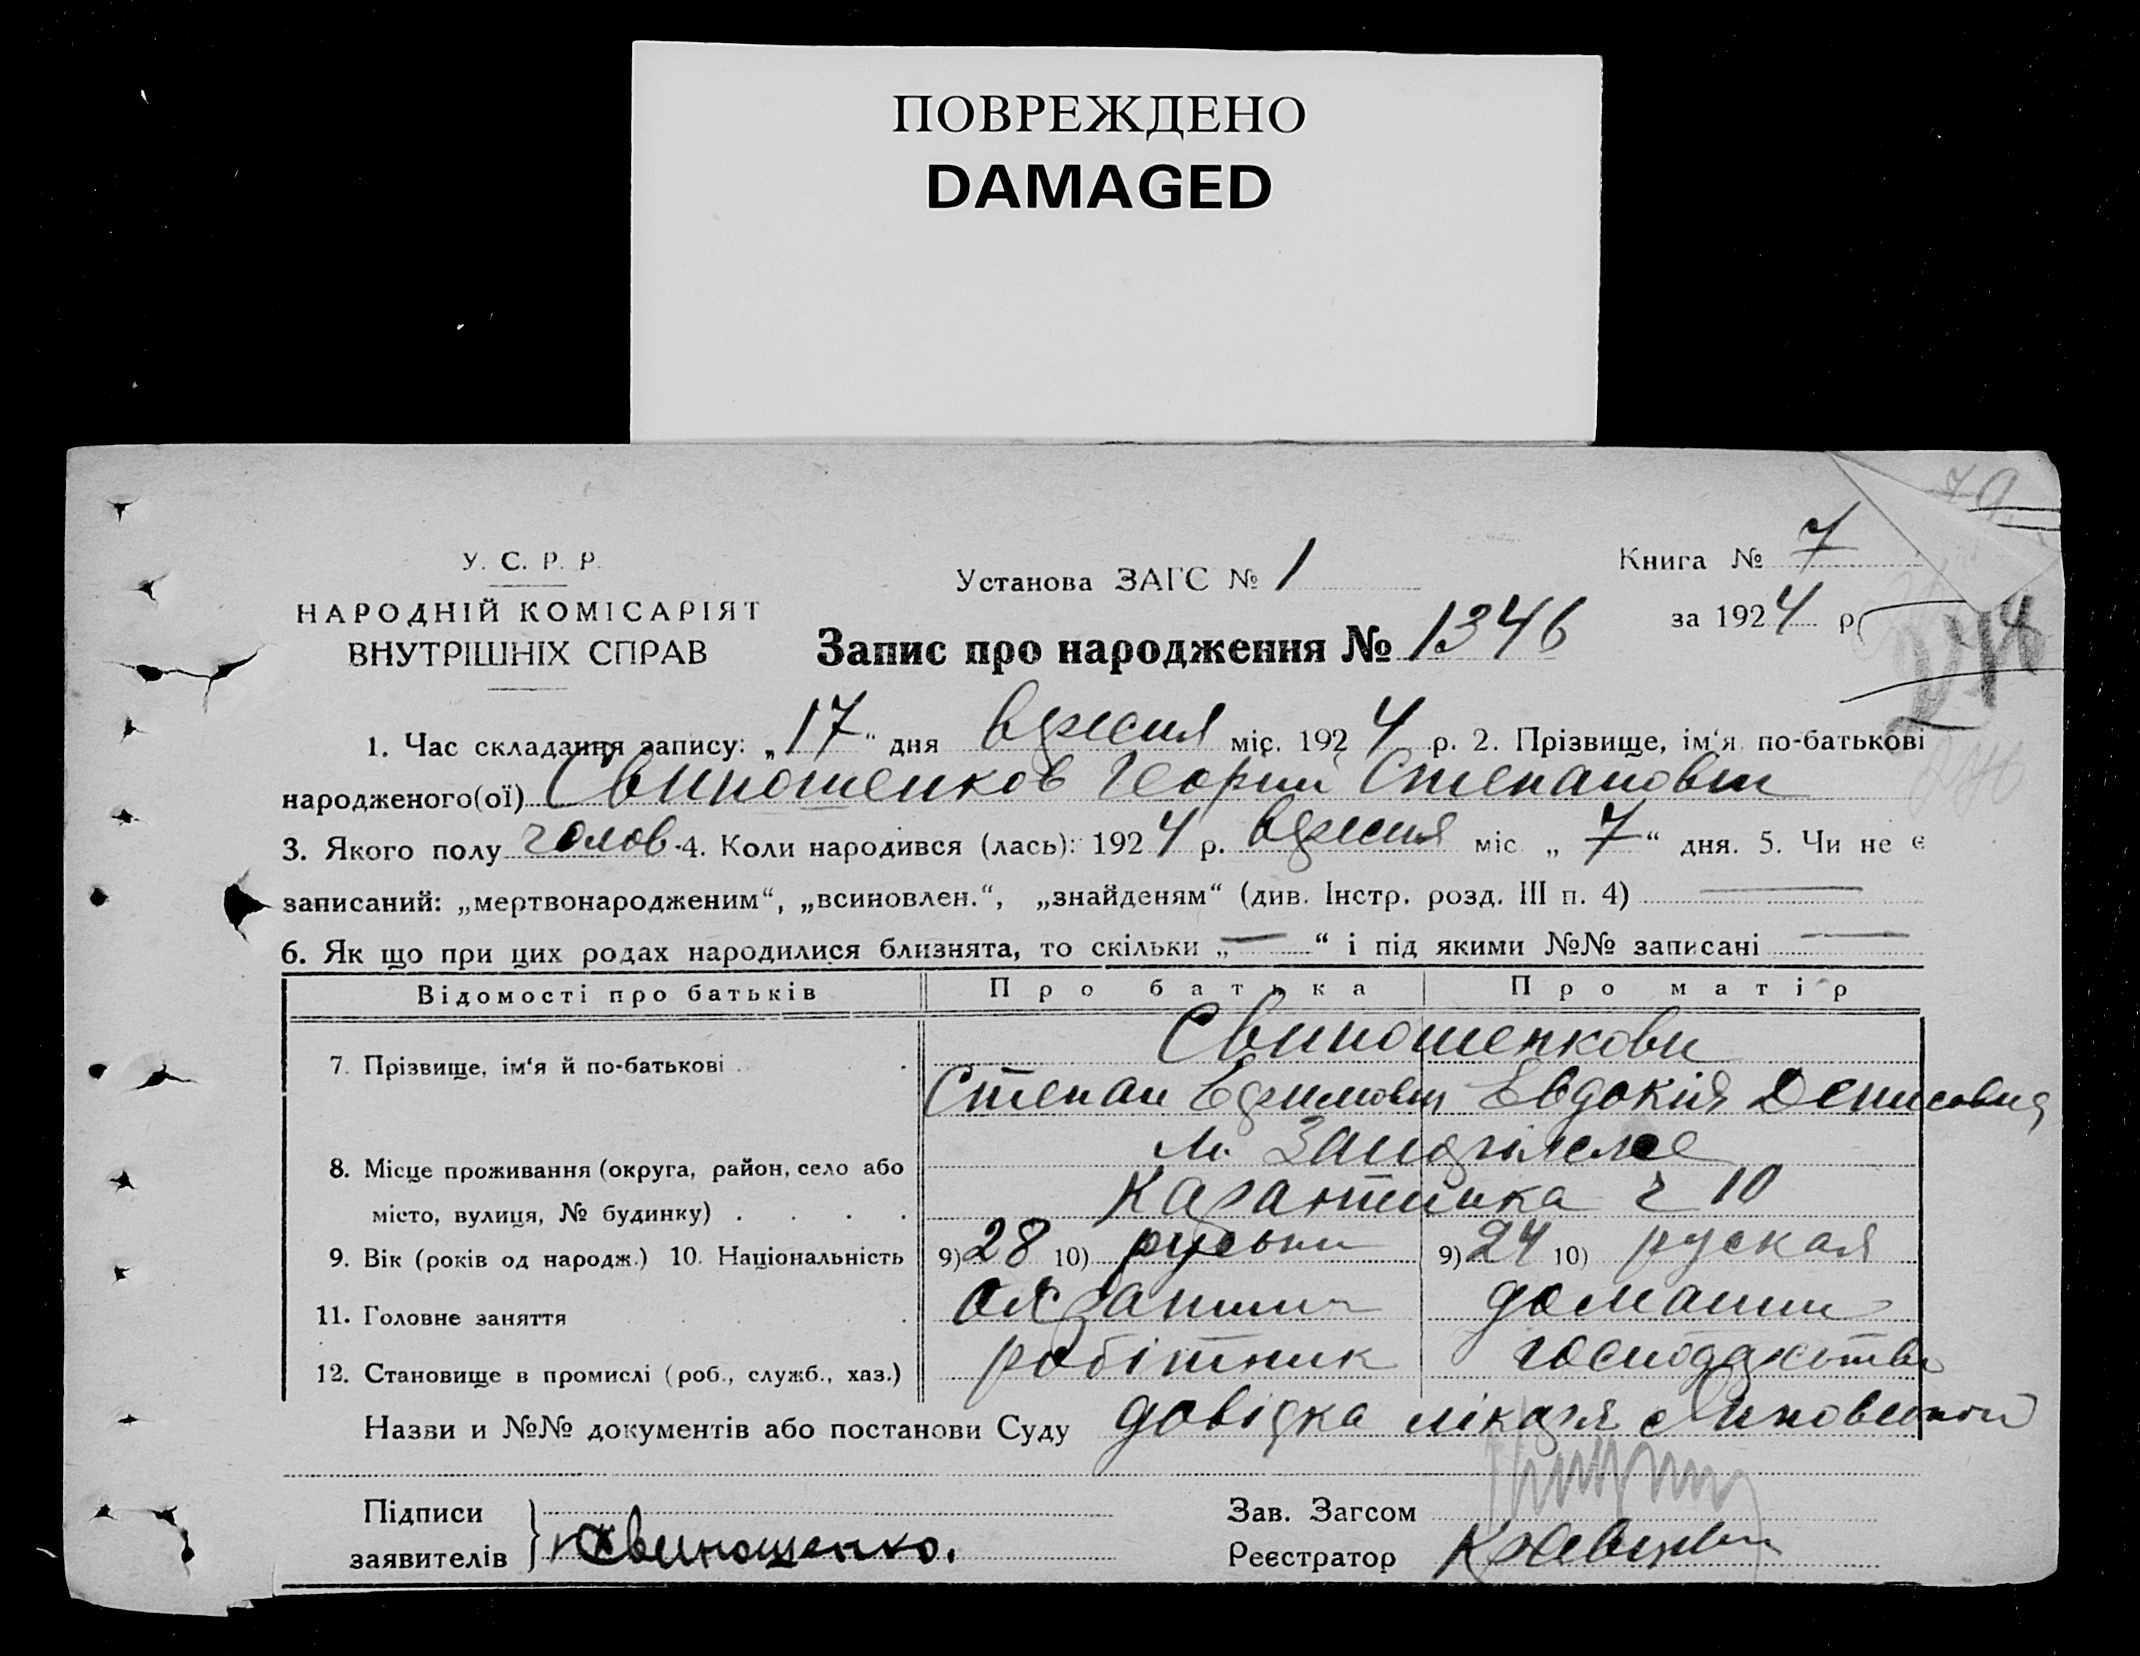 ПОВРЕЖДЕНО
DAMAGED
У. С. Р. Р.
НАРОДНІЙ КОМІСАРІЯТ
ВНУТРІШНІХ СПРАВ
Установа ЗАГС № 1
Книга № 7
за 1924 р
Запис про народження № 1346
1. Час складання запису: „17“ дня вересня міс. 1924 р. 2. Прізвище, ім‘я по-батькові
народженого(ої) Свиношенков Георгий Степанович
3. Якого полу голов. 4. Коли народився (лась): 1924 р. вересня міс „7“ дня. 5. Чи не є
записаний: „мертвонародженим“, „всиновлен.“, „знайденям“ (див. Інстр. розд. III п. 4) —
6. Як що при цих родах народилися близнята, то скільки „—“ і під якими №№ записані —
Відомості про батьків Про батька Про матір
7. Прізвище, ім‘я й по-батькові Свиношенкови
Степан Ефимович Евдокия Денисовна
8. Місце проживання (округа, район, село або м. Запоріжже
місто, вулиця, № будинку) ч 10
9. Вік (років од народж.) 10. Національність 9) 28 10) руськи 9) 24 10) руская
11. Головне заняття домашни
12. Становище в промислі (роб., служб., хаз.) робітник господарство
Назви и №№ документів або постанови Суду довідка лікаря
Підписи
заявителів Свинощенко.
Зав. Загсом
Реєстратор